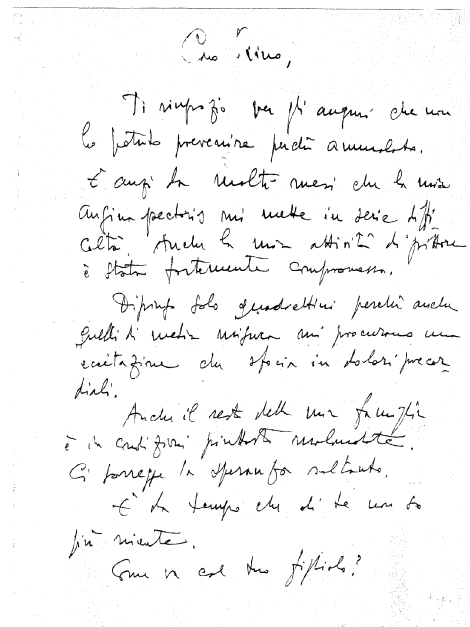 Caro Nino,
Ti ringrazio per gli auguri che non
ho potuto prevenire perché ammalato.
È anzi da molti mesi che la mia
angina pectoris mi mette in serie diffi
coltà. Anche la mia attività di pittore
è stata fortemente compromessa.
Dipingo solo quadrettini perché anche
quelli di media misura mi procurano una
eccitazione che sfocia in dolori precor
diali.
Anche il resto della mia famiglia
è in condizioni piuttosto malandate.
Ci sorregge la speranza soltanto.
È da tempo che di te non so
più niente.
Come va col tuo figliolo?